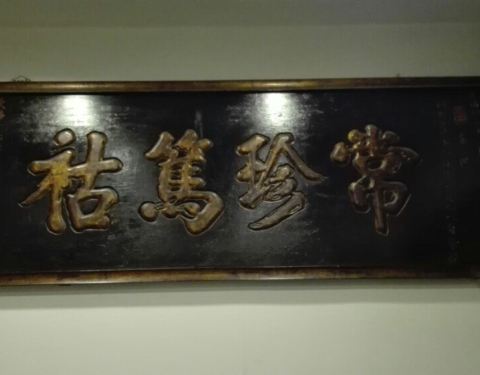 常珍篤祜